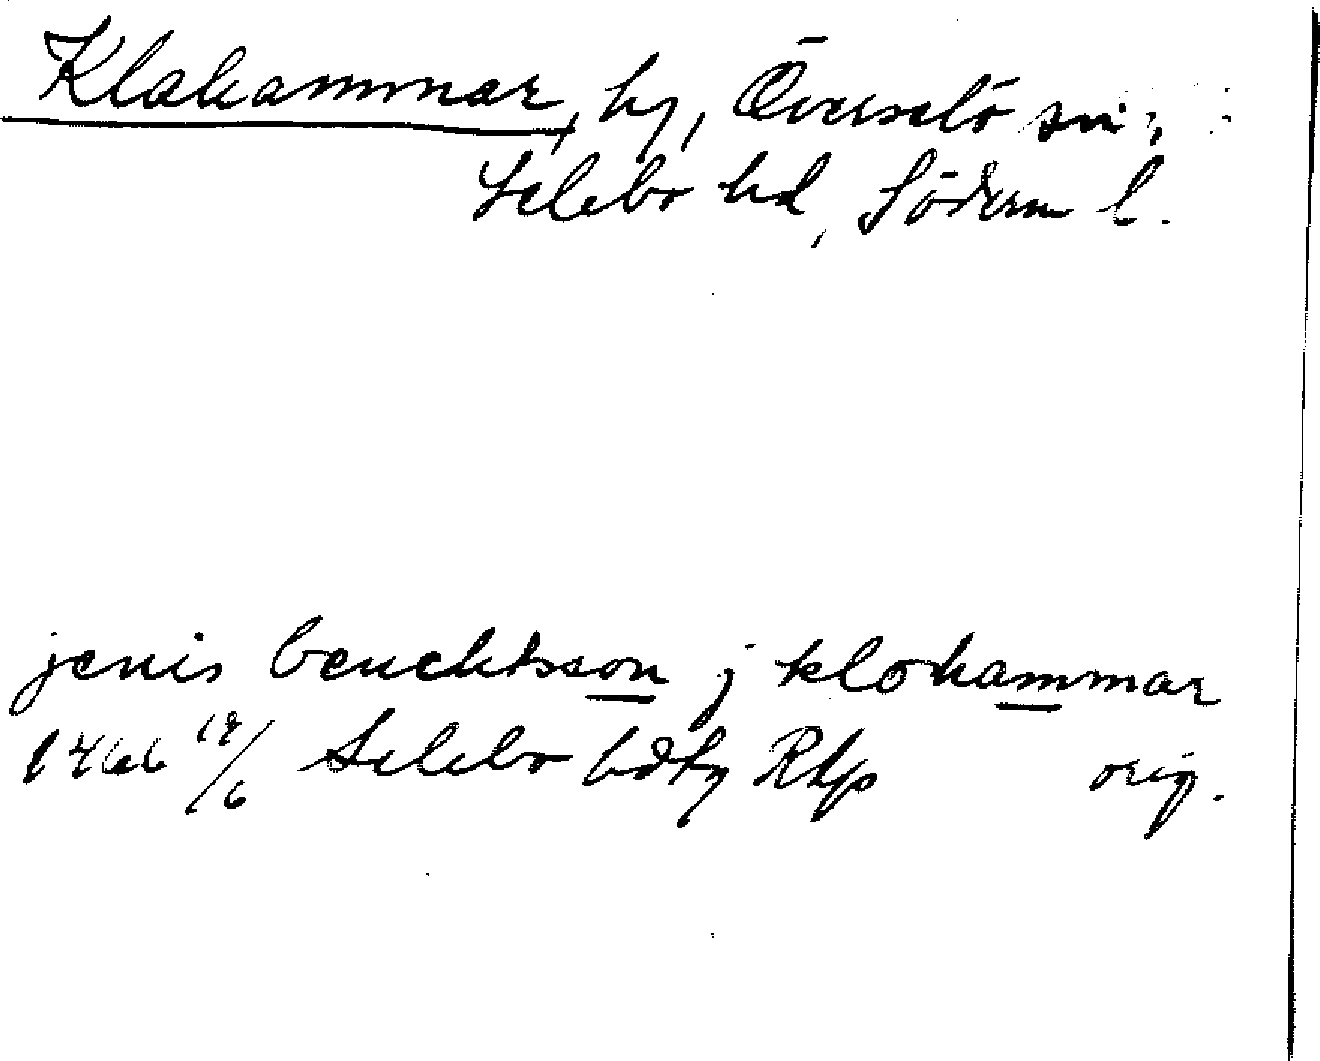 Klahammar, by, Överselö sn,
Selebo hd, Söderm l.
jenis benchtsson j klohammar
1466 19/6 Selebo hdtg Rhps orig.